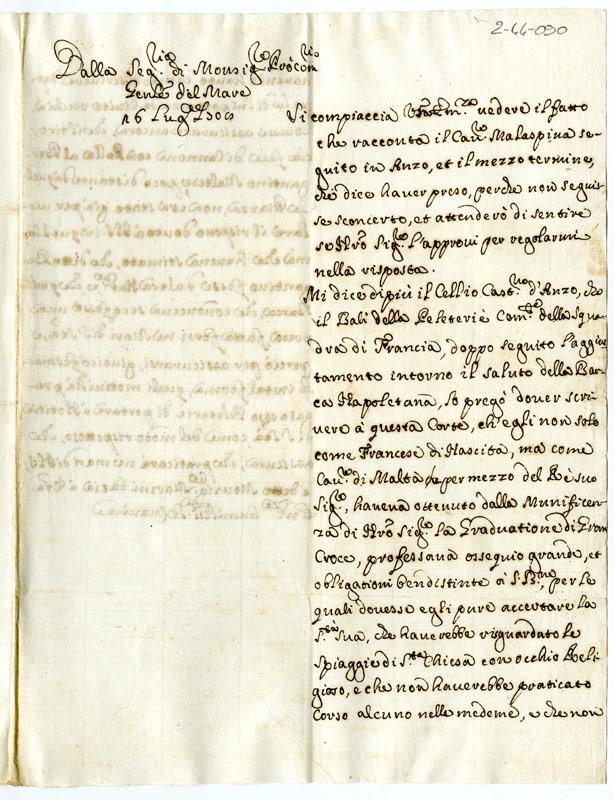 2-44-030
Dalla Seg.ria di Monsig.re Procom.rio
Gen.le del Mare
16 Lug.
Si compiaccia vedere il fatto
che racconta il Cau.re Malaspina se-
guito in Anzo, et il mezzo termine,
che dice hauer preso, perche non seguis-
se sconcerto, et attenderò di sentire
se Nro Sig.re l'approui per regolarmi
nella risposta.
Mi dice di più il Cellio Cast.no d'Anzo, che
il Balì della Peleterie Com.te della Squa-
dra di Francia, doppo seguito l'aggius-
tamento intorno il saluto della Bar-
ca Napoletana, lo pregò douer scri-
uere à questa Corte, ch'egli non solo
come Francese di Nascita, ma come
Cau.re di Malta per mezzo del Rè suo
Sig.re, haueua ottenuto dalla Munificen-
za di Nro Sig.re la Graduatione di Gran
Croce, professaua ossequio grande, et
obligationi ben distinte à S. B.ne, per le
quali douesse egli pure accertare la
S.tà Sua, che hauerebbe riguardato le
Spiaggie di S.ta Chiesa con occhio Reli-
gioso, e che non hauerebbe praticato
Corso alcuno nelle medeme, e che non